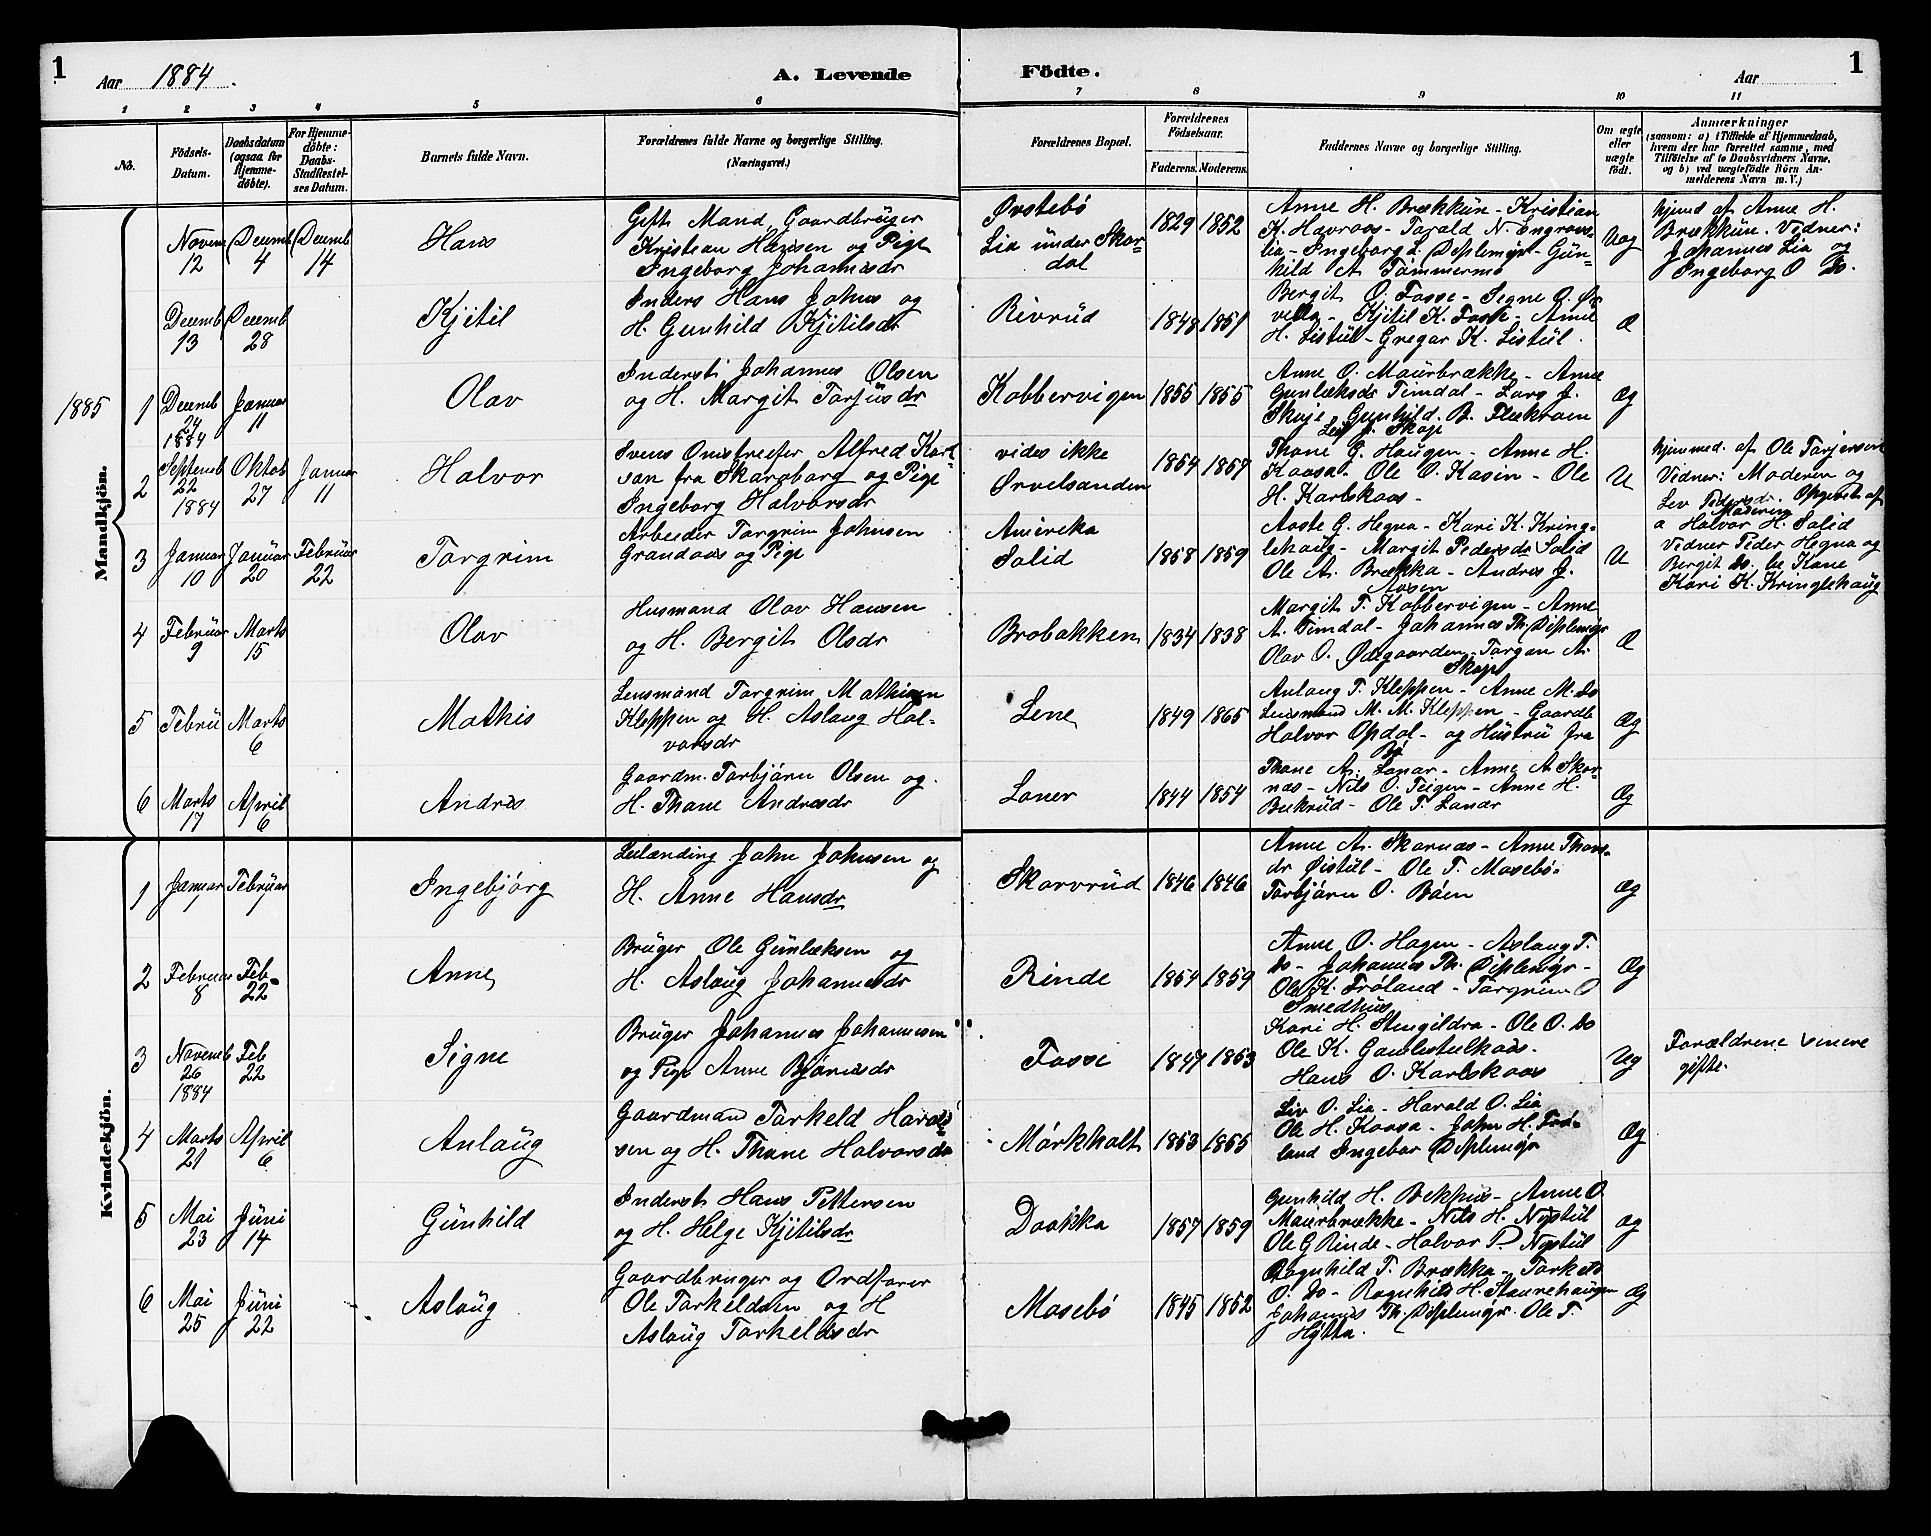 1
Aar 1884.
A. Levende
Födte.
Aar
1
1 2 3 4 5 6 7 8 9 10 11
No.
Födsels-
Datum.
Daabsdatum
(ogsaa for
Hjemme-
döbte).
For Hjemme-
döbte:
Daabs-
Stadfestel-
ses Datum.
Barnets fulde Navn.
Forældrenes fulde Navne og borgerlige Stilling.
(Næringsvei.)
Forældrenes Bopæl.
Forældrenes
Födselsaar.
Faderens. Moderens.
Faddernes Navne og borgerlige Stilling.
Om ægte
eller
uægte
födt.
Anmærkninger
(saasom: a) i Tilfælde af Hjemmedaab,
hvem der har forrettet samme, med
Tilföielse af to Daabsvidners Navne,
og b) ved uægtefödte Börn An-
melderens Navn m. V.)
Mandkjön.
Novem
12
Decemb
4
Decemb
14
Hans
Gift Mand, Gaardbruger
Kristian Hansen og Pige
Ingeborg Johannesdr
Øvstebö
Lia under Skor-
dal
1829 1852
Anne H. Brækkun - Kristian
K. Havraas - Tarald N. Engravs-
lia - Ingeborg L. Diplemyr - Gun-
hild A. Tömmermo
Uæg
hjemd af Anne H.
Brækkun. Vidner:
Johannes Lia og
Ingeborg O Do.
Decemb
13
Decemb
28
Kjetil
Inders Hans Johns og
H. Gunhild Kjetilsdr
Rivrud
1848 1851
Bergit O. Fosse - Signe O. Ør-
vella - Kjetil K. Fosse - Anne
H. Listul - Gregar K. Listul.
Æ
1885
1
Decemb
24
1884
Januar
11
Olav
Inderst Johannes Olsen
og H. Margit Torjusdr
Kobbervigen
1855 1855
Anne O. Maurbrække - Anne
Gunleksdr Timdal - Lars J.
Skoje - Gunhild B. Flekram
Leif J. Skoje
Æg
2
Septemb
22
1884
Oktob
27
Januar
11
Halvor
Svens Omstreifer Alfred Karl-
son fra Skaraborg og Pige
Ingeborg Halvorsdr
vides ikke
Örvelsanden
1854 1857
Thone G. Haugen - Anne H.
Kaasa - Ole O. Kasin - Ole
H. Karlskaas -
U
hjemmed. af Ole Torjersen
Vidner: Moderen og
Liv Pedersdr. Opgivet af
Moderen
a Halvor H. Solid
3
Januar
10
Januar
20
Februar
22
Torgrim
Arbeider Torgrim Johnsen
Grandaas og Pige
Amerika
Solid
1858 1859
Aaste G. Hegna - Kari K. Kring-
lehaug - Margit Pedersdr Solid
Ole A. Brække - Andres J.
Aasen
U
Vidner Peder Hegna og
Bergit do. be Kone
Kari K. Kringlehaug
4
Februar
9
Marts
15
Olav
Husmand Olav Hansen
og H. Bergit Olsdr
Brobakken
1834 1838
Margit T. Kobbervigen - Anne
A. Timdal - Johannes Th. Diplemyr
Olav O. Ødegaarden - Torgen A.
Skoje
Æ
5
Febru
Marts
6
Mathis
Lensmand Torgrim Mathisen
Kleppen og H. Aslaug Hal-
vorsdr
Lene
1849 1865
Anlaug T. Kleppen - Anne M. do
Lensmand M. M. Kleppen - Gaardb
Halvor Opdal - og Hustru fra
Bö
Æg
6
Marts
17
April
6
Andres
Gaardm. Torbjörn Olsen og
H. Thone Andresdr
Loner
1844 1854
Thone A. Lonar - Anne A. Skor-
næs - Nils O. Teigen - Anne H.
Bukrud - Ole T. Lonar
Æg
Kvindekjön.
1
Januar
7
Februar
Ingebjörg
Leilænding John Johnsen og
H. Anne Hansdr
Skorvrud
1846 1846
Anne A. Skornæs - Anne Thors-
dr Öistul - Ole T. Mosebö -
Torbjörn O. Böen
Æg
2
Februar
8
Feb
22
Anne
Bruger Ole Gunleksen og
H. Aslaug Johannesdr
Rinde
1854 1859
Anne O. Hagen - Aslaug T.
do - Johannes Th. Diplemyr -
Ole K. Fröland - Torgrim O
Smedhus
Æg
3
Novemb
26
1884
Feb
22
Signe
Bruger Johannes Johannesen
og Pige Anne Björnsdr
Fosse
1847 1853
Kari H. Stengildra - Ole O. do
Ole K. Gamlestulkaas.
Hans O. Karlskaas
Uæg
Forældrene senere
gifte.
4
Marts
21
April
6
Anlaug
Gaardmand Torkeld Harald-
sen og H. Thone Halvorsdr
Mörkholt
1853 1855
Liv O. Lia - Harald O. Lia
Ole H. Kaasa - John H. Frö-
land Ingebor Diplemyr
Æg
5
Mai
23
Juni
14
Gunhild
Inderst Hans Pettersen
og H. Helge Kjetilsdr
Daakka
1857 1859
Gunhild H. Bekhus - Anne O.
Maurbrække - Nils H. Nystul
Ole G Rinde - Halvor P. Nystul
Æg
6
Mai
25
Juni
22
Aslaug
Gaardbruger og Ordförer
Ole Torkeldsen og H
Aslaug Torkeldsdr
Mosebö
1845 1852
Ragnhild T. Brække - Torkeld
O. do - Ragnhild H. Staurehaugen
Johannes Th. Diplemyr. Ole T.
Hytta.
Æg